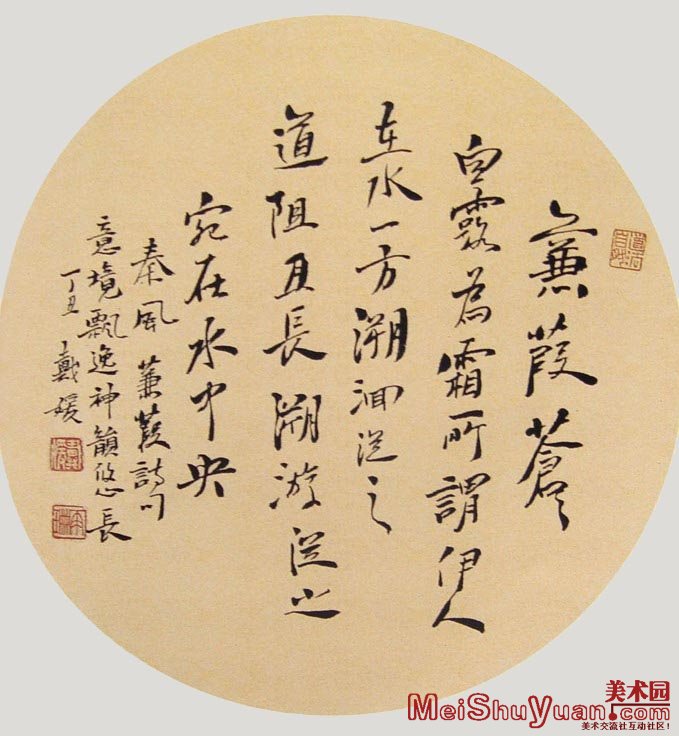 蒹葭蒼々
白露為霜所謂伊人
在水一方溯洄從之
道阻且長溯游從之
宛在水中央
秦風蒹葭詩句
意境飄逸神韻悠長
丁丑戴媛
美术园
MeiShuYuan.com
美术交流社互动社区！